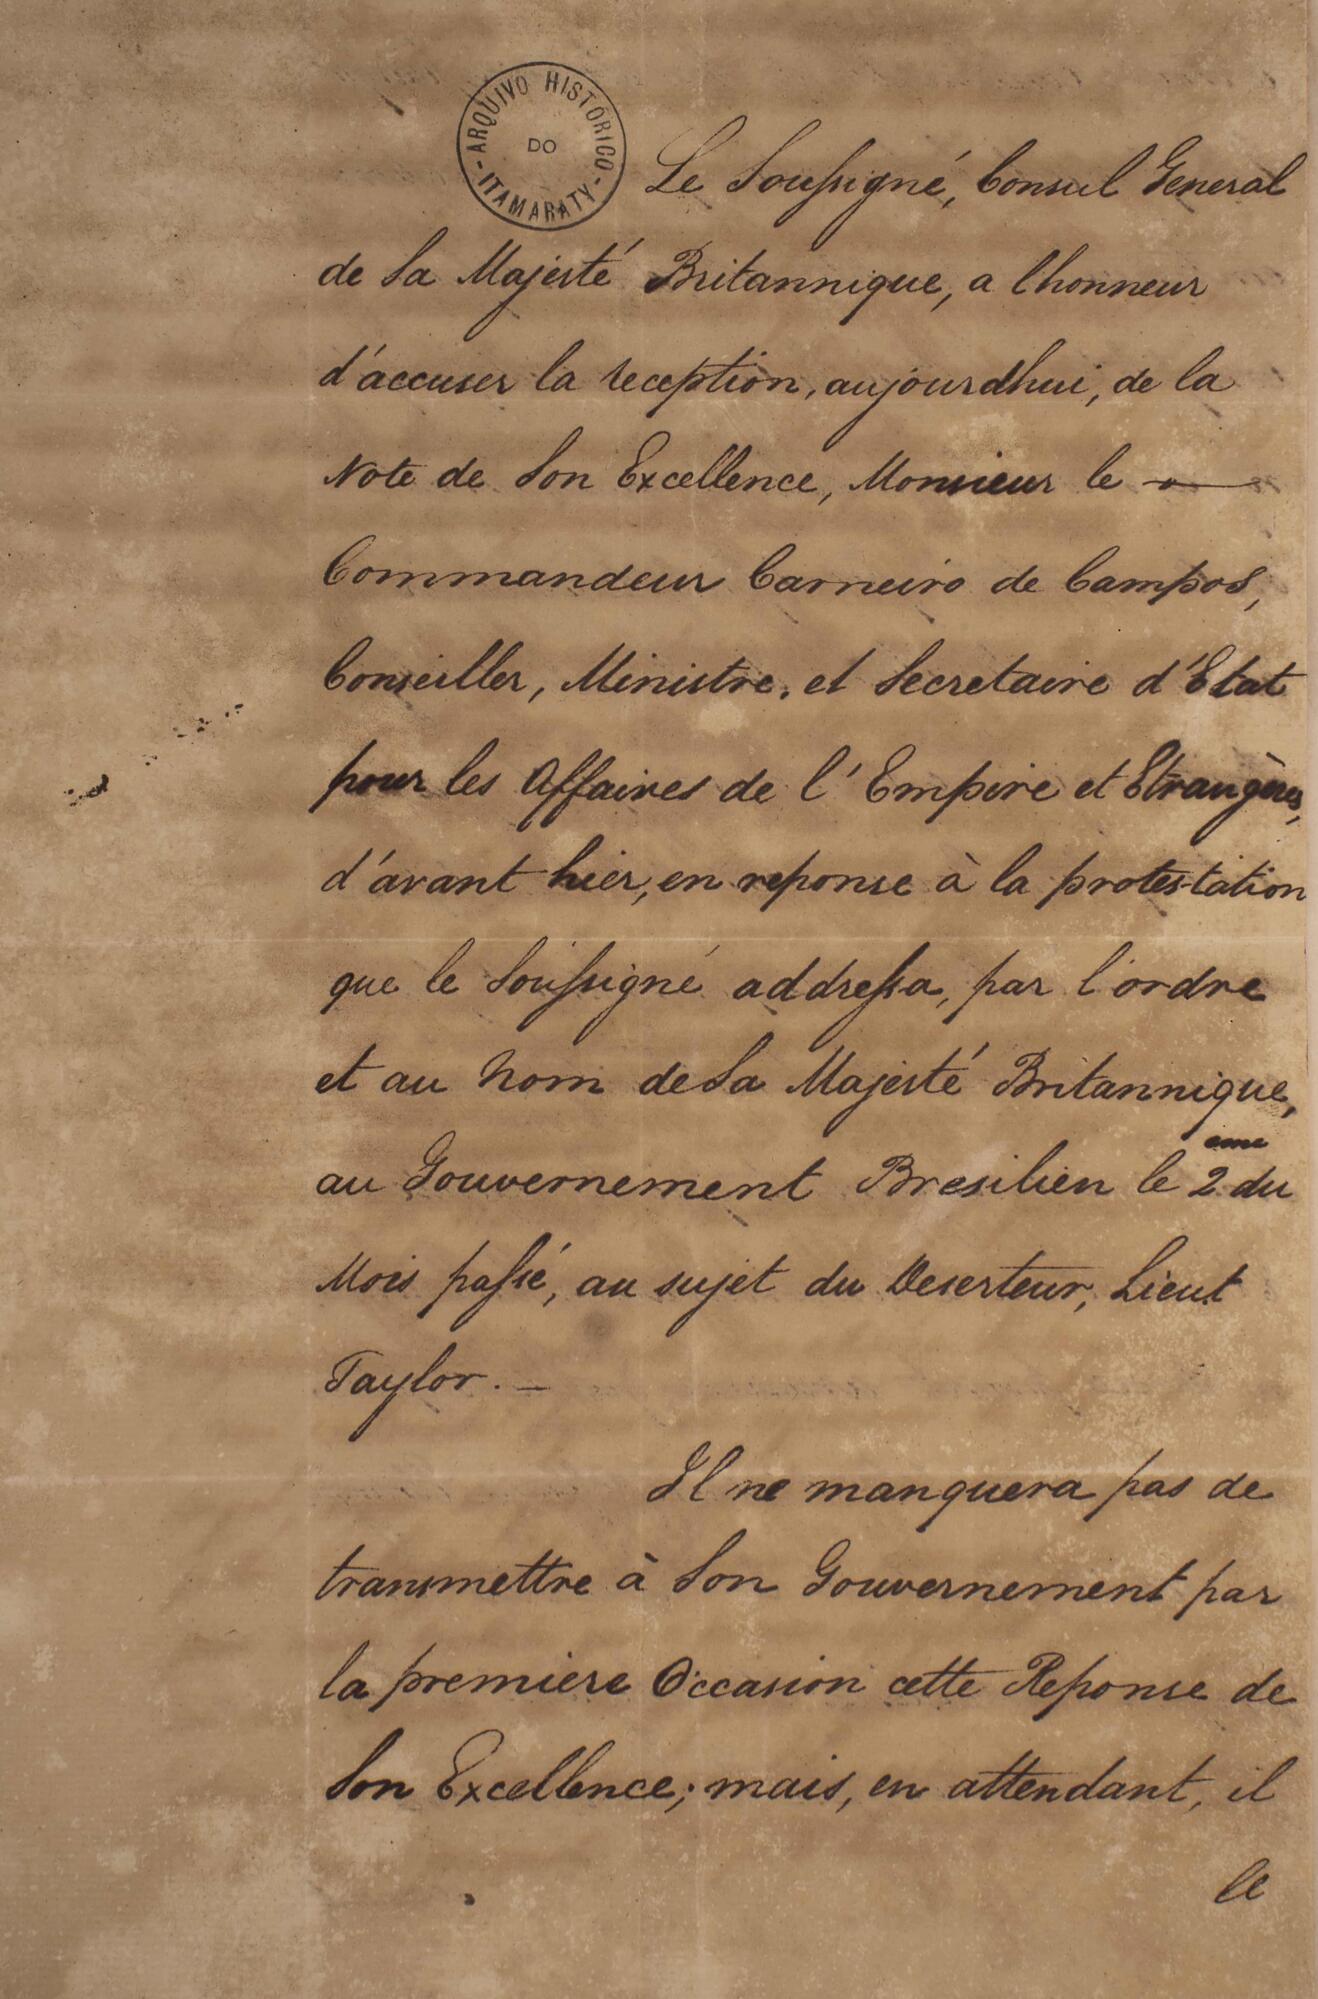 ARQUIVO HISTÓRICO
DO
ITAMARATY
Le Soussigné, Consul General
de Sa Majesté Britannique, a l'honneur
d'accuser la reception, aujourdhui, de la
Note de Son Excellence, Monsieur le —
Commandeur Carneiro de Campos,
Conseiller, Ministre, et Secretaire d'Etat
pour les Affaires de l'Empire et Etrangères,
d'avant hier, en reponse à la protestation
que le Soussigné addressa, par l'ordre
et au Nom de Sa Majesté Britannique,
au Gouvernement Bresilien le 2eme du
Mois passé, au sujet du Deserteur, Lieut
Taylor. —
Il ne manquera pas de
transmettre à Son Gouvernement par
la premiere Occasion cette Reponse de
Son Excellence; mais, en attendant, il
le